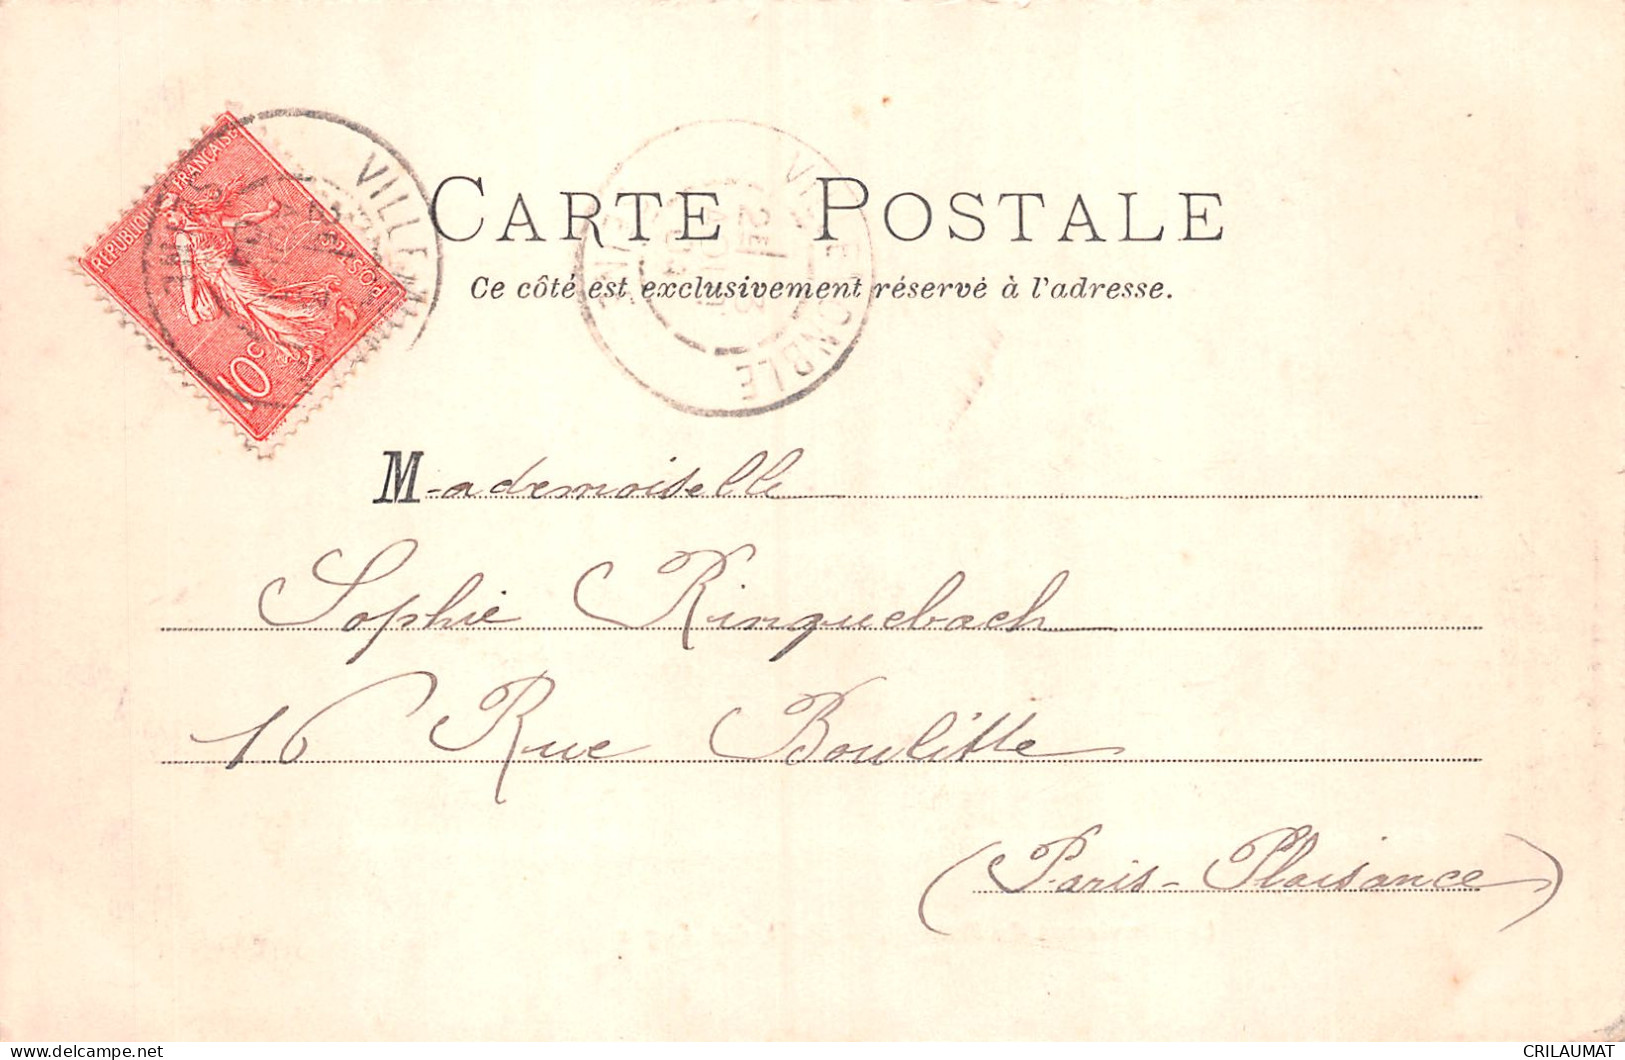 RÉPUBLIQUE FRANÇAISE
POSTES
10c
CARTE POSTALE
Ce côté est exclusivement réservé à l'adresse.
Mademoiselle
Sophie Ringuebach
16 Rue Boulitte
(Paris-Plaisance)
CRILAUMAT